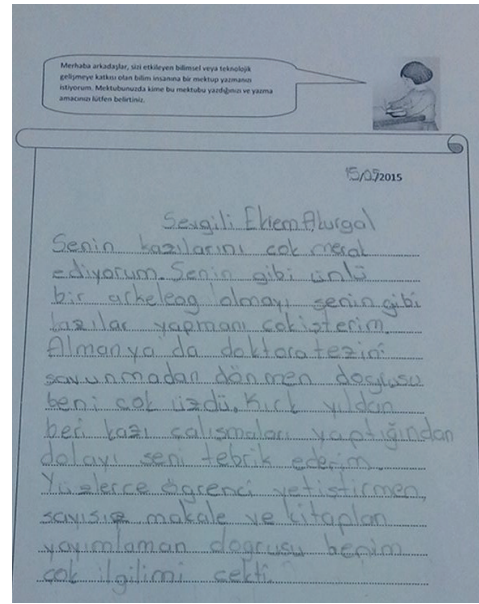 Merhaba arkadaşlar, sizi etkileyen bilimsel veya teknolojik
gelişmeye katkısı olan bilim insanına bir mektup yazmanızı
istiyorum. Mektubunuzda kime bu mektubu yazdığınızı ve yazma
amacınızı lütfen belirtiniz.
15/05/2015
Sevgili Ekrem Akurgal
Senin kazılarını çok merak
ediyorum. Senin gibi ünlü
bir arkeleog olmayı senin gibi
kazılar yapmanı çok isterim.
Almanya'da doktora tezini
savunmadan dönmen doğrusu
beni çok üzdü. Kırk yıldan
beri kazı çalışmaları yaptığından
dolayı seni tebrik ederim.
Yüzlerce öğrenci yetiştirmen,
sayısız makale ve kitapları
yayımlaman doğrusu benim
çok ilgilimi çekti.